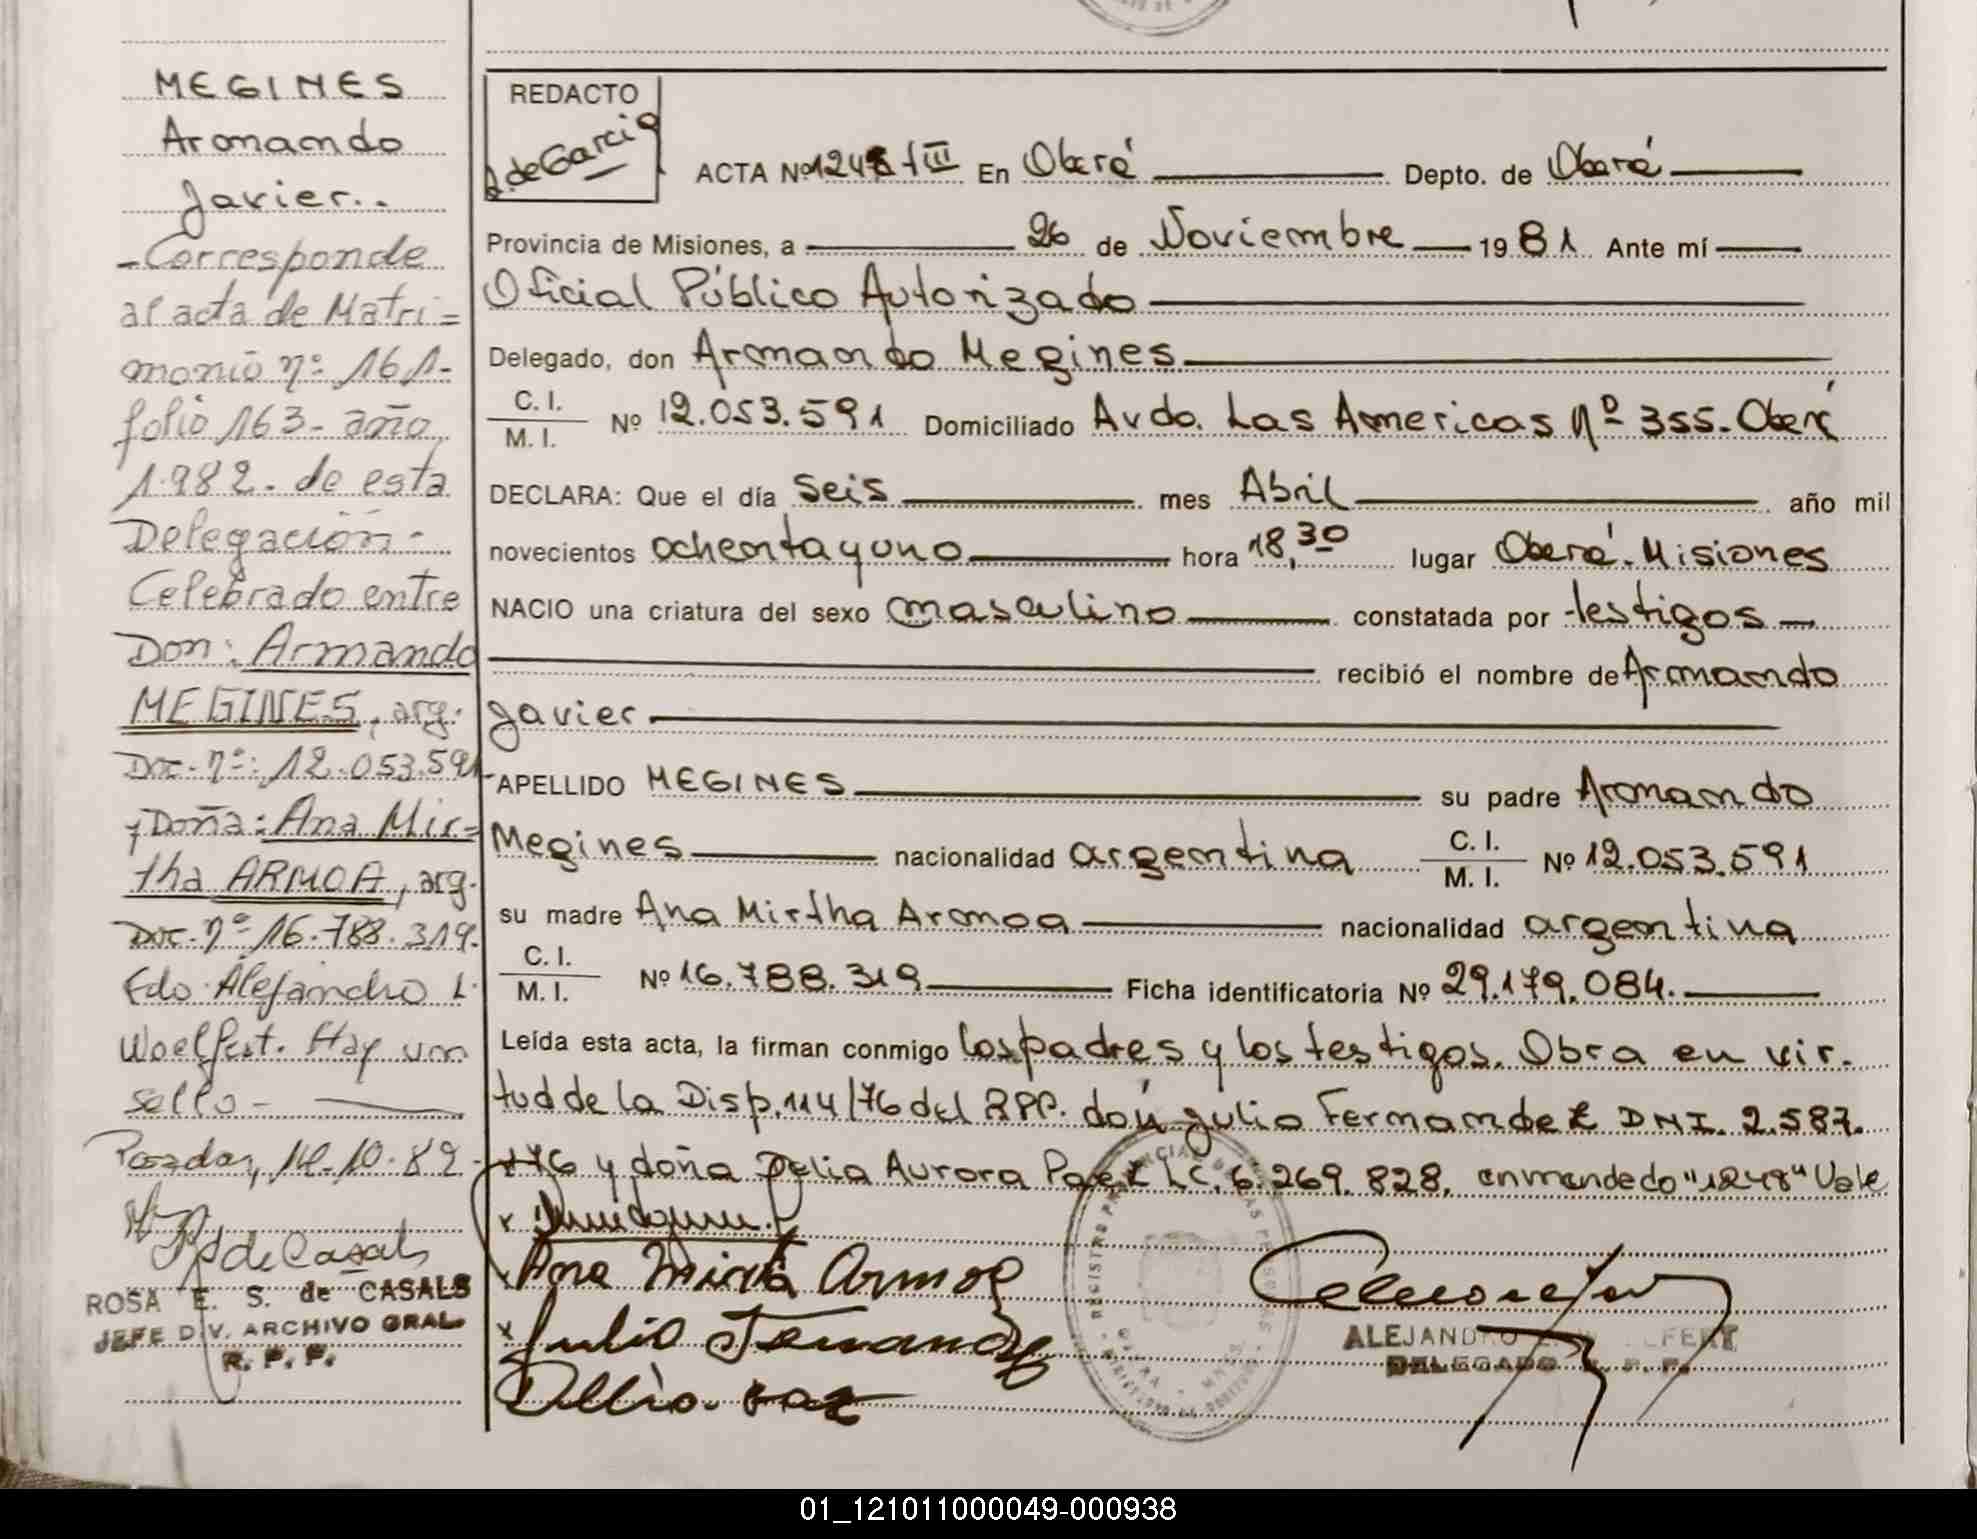 MEGINES
Armando
Javier..
-Corresponde
al acta de Matri=
monio nº: 161-
folio 163- año
1.982- de esta
Delegación-
Celebrado entre
Don: Armando
MEGINES, arg.
Doc. nº: 12.053.591
y Doña: Ana Mir=
tha ARMOA, arg.
Doc. nº 16.788.319.
Fdo. Alejandro L.
Woelfert. Hay un
sello-
Posadas, 14-10-82-
R S de Casals
ROSA E. S. de CASALS
JEFE DIV. ARCHIVO GRAL.
R. P. P.
REDACTO
de Garcia
ACTA Nº 1248 t III En Oberá Depto. de Oberá
Provincia de Misiones, a 26 de Noviembre 19 81 Ante mí
Oficial Público Autorizado
Delegado, don Armando Megines
C. I.
M. I. Nº 12.053.591 Domiciliado Avda. Las Americas Nº 355. Oberá
DECLARA: Que el día seis mes Abril año mil
novecientos ochenta y uno hora 18,30 lugar Oberá. Misiones
NACIO una criatura del sexo masculino constatada por testigos
recibió el nombre de Armando
Javier
APELLIDO MEGINES su padre Armando
Megines nacionalidad argentina C. I.
M. I. Nº 12.053.591
su madre Ana Mirtha Armoa nacionalidad argentina
C. I.
M. I. Nº 16.788.319 Ficha identificatoria Nº 29.179.084.
Leída esta acta, la firman conmigo los padres y los testigos. Obra en vir-
tud de la Disp. 114/76 del RPP. don Julio Fernandez DNI. 2.587.
176 y doña Delia Aurora Paez LC. 6.269.828. enmendado "1248" Vale
Ana Mirta Armoa
Julio Fernandez
ALEJANDRO L. WOELFERT
DELEGADO R. P. P.
01_121011000049-000938